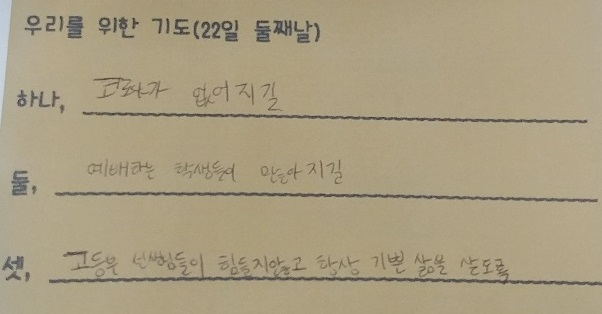 우리를 위한 기도(22일 둘째날)
하나, 코로나가 없어지길
둘, 예배하는 학생들이 많아지길
셋, 고등부 선생님들이 힘들지않고 항상 기쁜 삶을 살도록